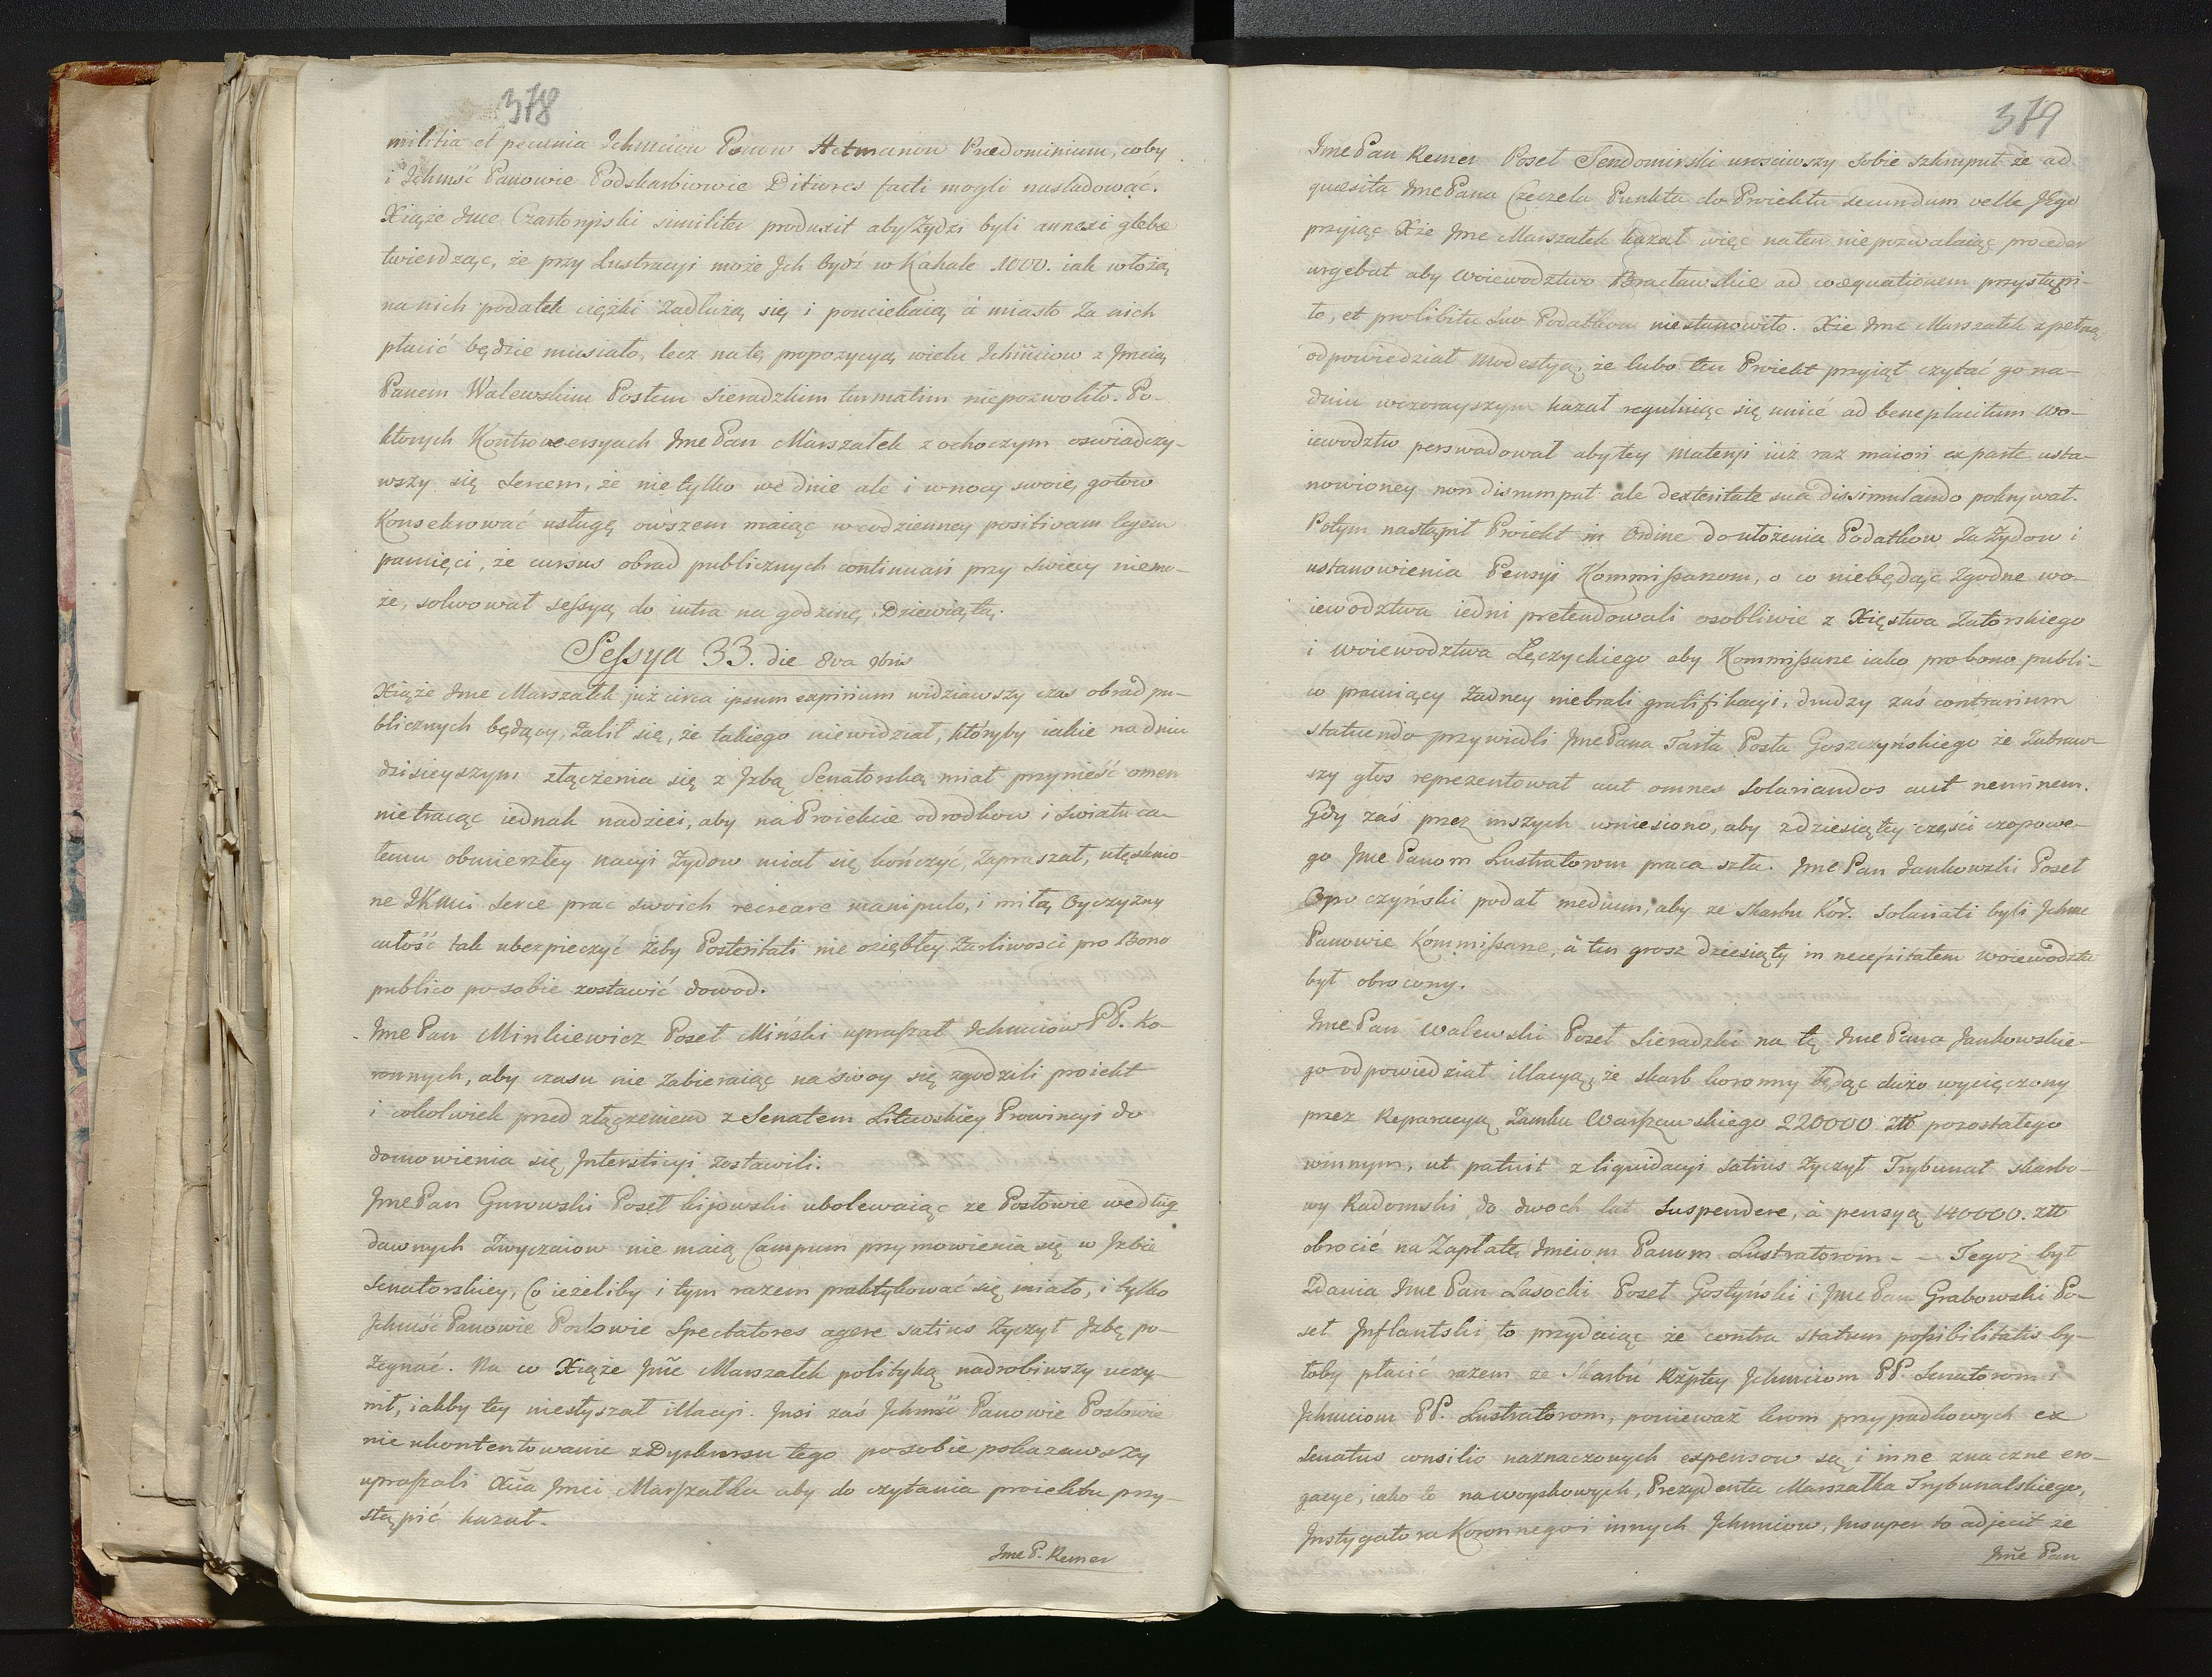 378
militia et pecunia Ichmciow Panow Hetmanow Praedominium, coby
i Ichmść Panowie Podskarbiowie Ditiores facti mogli nasladować.
Xiąże Jmc Czartoryiski similiter produxit aby Żydzi byli annexi glebae
twierdząc, że przy Lustracyi może Jch bydź w Kahale 1000. iak włożą
na nich podatek ciężki zadłużą się i pouciekaią à miasto za nich
płacić będzie musiało, lecz na tę propozycyą wielu Ichmciow z Jmcią
Panem Walewskim Posłem Sieradzkim turmatim niepozwoliło. Po-
ktorych Kontrowersyach Jmc Pan Marszałek z ochoczym oswiadczy-
wszy się sercem, że nie tylko we dnie ale i w nocy swoię gotow
Konsekrować usługę owszem maiąc w codzienney positivam legem
pamięci, że cursus obrad publicznych continuari przy swiecy niemo-
że, solwował sessyą do iutra na godzinę Dziewiątą.
Sessya 33. die 8va 9bris
Xiąże Jmc Marszałek już circa ipsum expirium widziawszy czas obrad pu-
blicznych będący, żalił się, że takiego niewidział, któryby iakie na dniu
dzisieyszym złączenia się z Jzbą Senatorską miał przynieść omen
nietracąc iednak nadziei, aby na Proiekcie odrodkow i swiatu ca-
łemu obmierzłey nacyi Żydow miał się kończyć, zapraszał, utęsknio-
ne JKMci serce prac swoich recreare manipulo, i miłą Oyczyzny
całość tak ubezpieczyć żeby Posteritati nie oziębłey żarliwosci pro Bono
publico po sobie zostawić dowod.
Jmc Pan Minkiewicz Poseł Miński upraszał Ichmciow PP. Ko-
ronnych, aby czasu nie zabieraiąc na swoy się zgodzili proiekt
i cokolwiek przed złączeniem z Senatem Litewskiey Prowincyi do
domowienia się Jnterstitcyi zostawili.
Jmc Pan Gurowski Poseł kijowski ubolewaiąc ze Posłowie według
dawnych zwyczaiow nie maią Campum przymowienia się w Jzbie
Senatorskiey, Co ieżeliby i tym razem praktykować się miało, i tylko
Jchmść Panowie Posłowie Spectatores agere satius życzył Jzbę po-
żegnać. Na co Xiąże Jmć Marszałek polityką nadrobiwszy uczy-
nił, iakby tey niesłyszał illacyi. Jnsi zaś Jchmść Panowie Posłowie
nie ukontentowanie z Dyskursu tego po sobie pokazawszy
upraszali Xcia Jmci Marszałka aby do czytania proiektu przy-
stąpić kazał.
Jmc P. Remer
379
Jmc Pan Remer Poseł Sendomirski urosciwszy sobie szkruput że ad
quaesita Jmc Pana Czeczela Punkta do Proiektu secundum velle Jego
przyiąc Xże Jmc Marszałek kazał więc na ten niepozwalaiąc proceder
urgebat aby Woiewodztwo Bracławskie ad coaequationem przystąpi-
ło, et pro libitu suo Podatkow niestanowiło. Xże Jmc Marszałek z pełną
odpowiedział modestyą, że lubo ten Proiekt przyiął czytać go na-
dniu wczorayszym kazał reguluiąc się unice ad beneplacitum Wo-
iewodztw perswadował aby tey materyi iuż raz maiori ex parte usta-
nowioney non disrumpat ale dexteritate sua dissimulando pokrywał.
Potym nastąpił Proiekt in Ordine do ułożenia Podatkow za Żydow i
ustanowienia Pensyi Kommissarzom, o co niebędąc zgodne wo-
iewodztwa iedni pretendowali osobliwie z Xięstwa Zatorskiego
i woiewodztwa Łęczyckiego aby Kommissarze iako pro bono publi-
co pracuiący żadney niebrali gratifikacyi, drudzy zaś contrarium
statuendo przywiedli Jmc Pana Tarła Posła Goszczyńskiego że zabraw-
szy głos reprezentował aut omnes Solariandos aut neminem.
Gdy zaś przez inszych wniesiono, aby z dziesiątey części czopowe-
go Jmc Panom Lustratorom praca szła. Jmc Pan Jankowski Poseł
Opoczyński podał medium, aby ze skarbu Kor. Solariati byli Jchmc
Panowie Kommissarze, à ten grosz dziesiąty in necessitatem woiewodztw
był obrocony.
Jmc Pan Walewski Poseł Sieradzki na tę Jmc Pana Jankowskie-
go odpowiedział illacyą, że skarb koronny będąc dużo wycięczony
przez Reparacyą Zamku Warszawskiego 220000 złł pozostałego
winnym, ut patuit z liquidacyi satius życzył Trybunał skarbo-
wy Radomski do dwoch lat suspendere, à pensyą 140000. złł
obrocić na Zapłatę Jmciom Panom Lustratorom – – Tegoz był
Zdania Jmc Pan Lasocki Poseł Gostyński i Jmc Pan Grabowski Po-
seł Jnflantski, to przydaiąc że contra statum possibilitatis by-
łoby płacić razem ze Skarbu Rzptey Jchmciom PP. Senatorom i
Jchmciom PP. Lustratorom, ponieważ krom przypadkowych ex
Senatus consilio naznaczonych expensow są i inne znaczne ero-
gacye, iako to na woyskowych, Prezydenta Marszałka Trybunalskiego,
Jnstygatora Koronnego i innych Jchmciow, Insuper to adjecit że
Jmć Pan